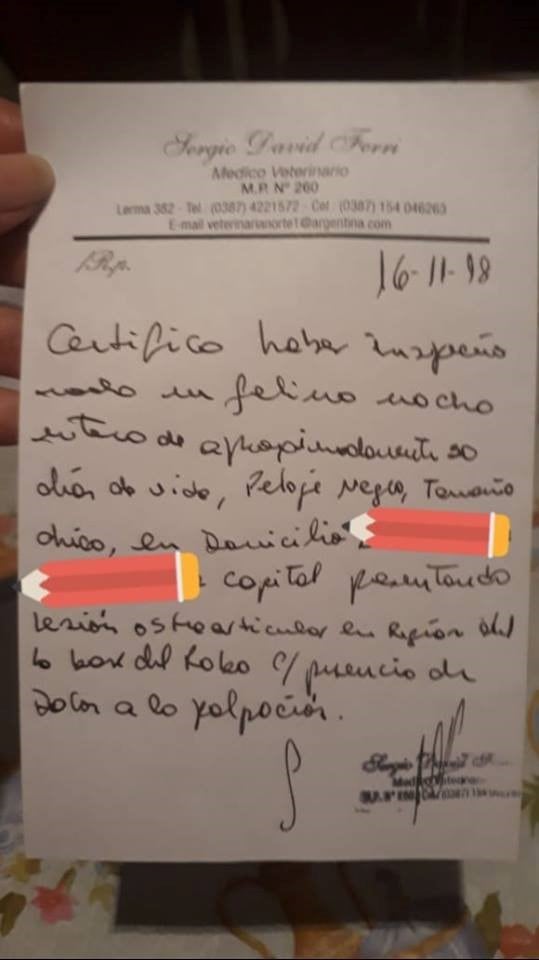 Sergio David Forri
Medico Veterinario
M.P. Nº 260
Lerma 382 - Tel.: (0387) 4221572 - Cel.: (0387) 154 046263
E-mail veterinarianorte1@argentina.com
/Rp.
16-11-98
Certifico haber inspeccio
nado un felino macho
entero de aproximadamente 50
días de vida, Pelaje Negro, Tamaño
chico, en Domicilio
capital presentando
Lesión osteoarticular en Región de
la base del Rabo c/ presencia de
Dolor a la palpación.
Sergio David F
Medico Veterinar
M.P. Nº 260